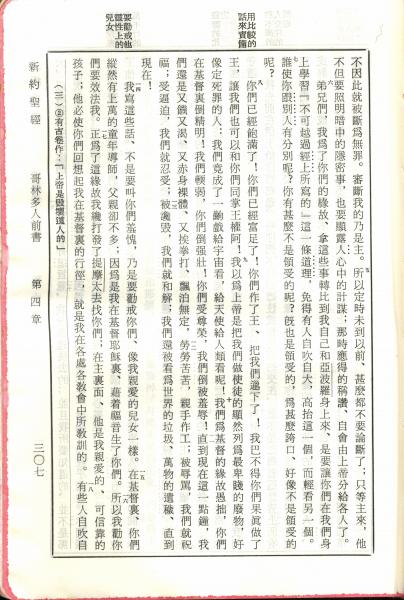 用比較的
話來責備
不因此就被斷爲無罪。審斷我的乃是主。所以定時未到以前、甚麼都不要論斷了；只等主來，他
不但要照明暗中的隱密事，也要顯露人心中的計謀；那時應得的稱讚，自會由上帝分給各人了。
弟兄們，我爲了你們的緣故、拿這些事轉比到我自己和亞波羅身上來，是要讓你們在我們身
上學習『不可越過經上所寫的』這一條道理，免得有人自吹自大，高抬這一個，而輕看另一個。
誰使你跟別人有分別呢？你有甚麼不是領受的呢？旣也是領受的，爲甚麼誇口、好像不是領受的
呢？
你們已經飽滿了！你們已經富足了！你們作了王、把我們
我巴不得你們果眞做了
王，讓我們也可以和你們同掌王權阿！我以爲上帝是把我們做使徒的顯然列爲最卑賤的廢物，好
像定死罪的人；我們竟成了一齣戲給宇宙看，給天使給人類看呢！我們爲基督的緣故愚拙，你們
在基督裏倒精明！我們輭弱，你們倒强壯！你們受尊榮，我們倒被羞辱！直到現在這一點鐘，我
們還是又餓又渴、又赤身裸體、又挨拳打、飄泊無定，勞勞苦苦，親手作工；被辱罵、我們就祝
福；受逼迫、我們就忍受；被讒毀、我們就和解；我們還被看爲世界的垃圾、萬物的遺穢、直到
現在！
要勸戒他
靈性上的
兒女
我寫這些話、不是要叫你們羞愧，乃是要勸戒你們、像我親愛的兒女一樣。在基督裏、你們
縱然有上萬的童年導師，父親卻不多；因爲是我在基督耶穌裏、藉着福音生了你們。所以我勸你
們要效法我。正爲了這緣故我纔打發了提摩太去找你們；在主裏面、他是我親愛的、可信靠的
孩子；他必使你們回想起我在基督裏的行徑，就是我在各處各敎會中所敎訓的。有些人自吹自
有古卷作：『上帝是
新約聖經　哥林多人前書　第四章　三〇七